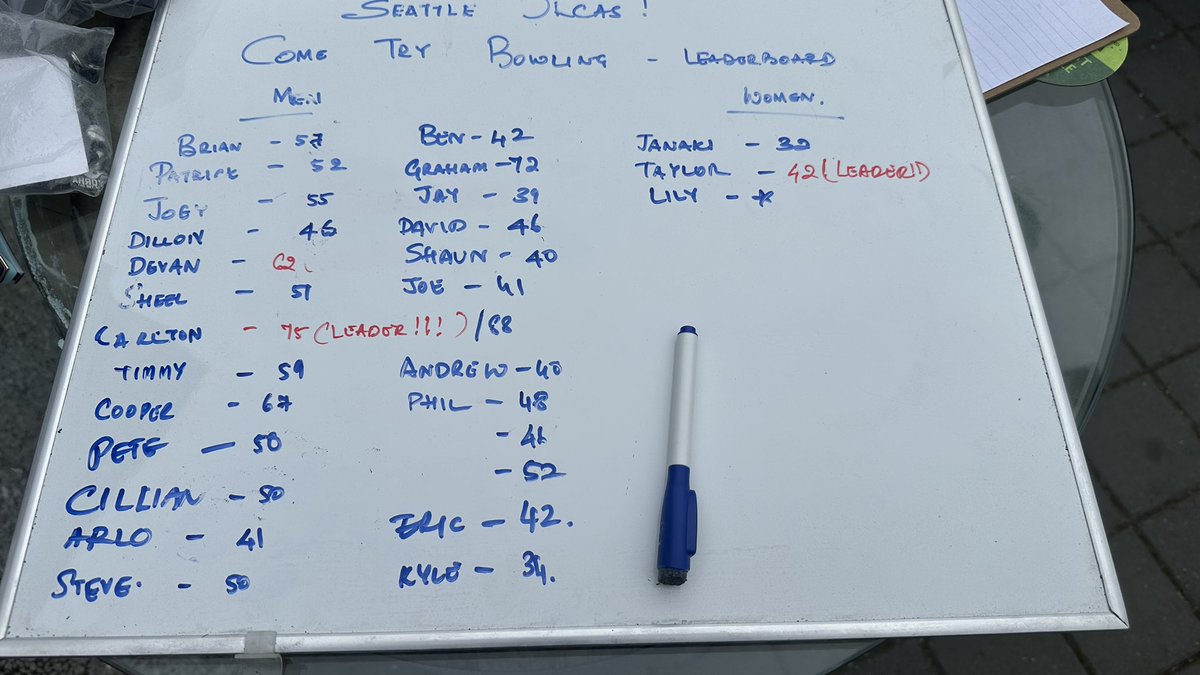 SEATTLE ORCAS!
COME TRY BOWLING - LEADERBOARD
MEN
BRIAN - 57
PATRICK - 52
JOEY - 55
DILLON - 46
DEVAN - 62
SHEEL - 51
CARLTON - 75 (LEADER!!!) / 88
TIMMY - 59
COOPER - 67
PETE - 50
CILLIAN - 50
ARLO - 41
STEVE. - 50
BEN - 42
GRAHAM - 72
JAY - 39
DAVID - 46
SHAUN - 40
JOE - 41
ANDREW - 40
PHIL - 48
- 41
- 52
ERIC - 42.
KYLE - 34.
WOMEN.
JANAKI - 32
TAYLOR - 42 (LEADER!!)
LILY - *